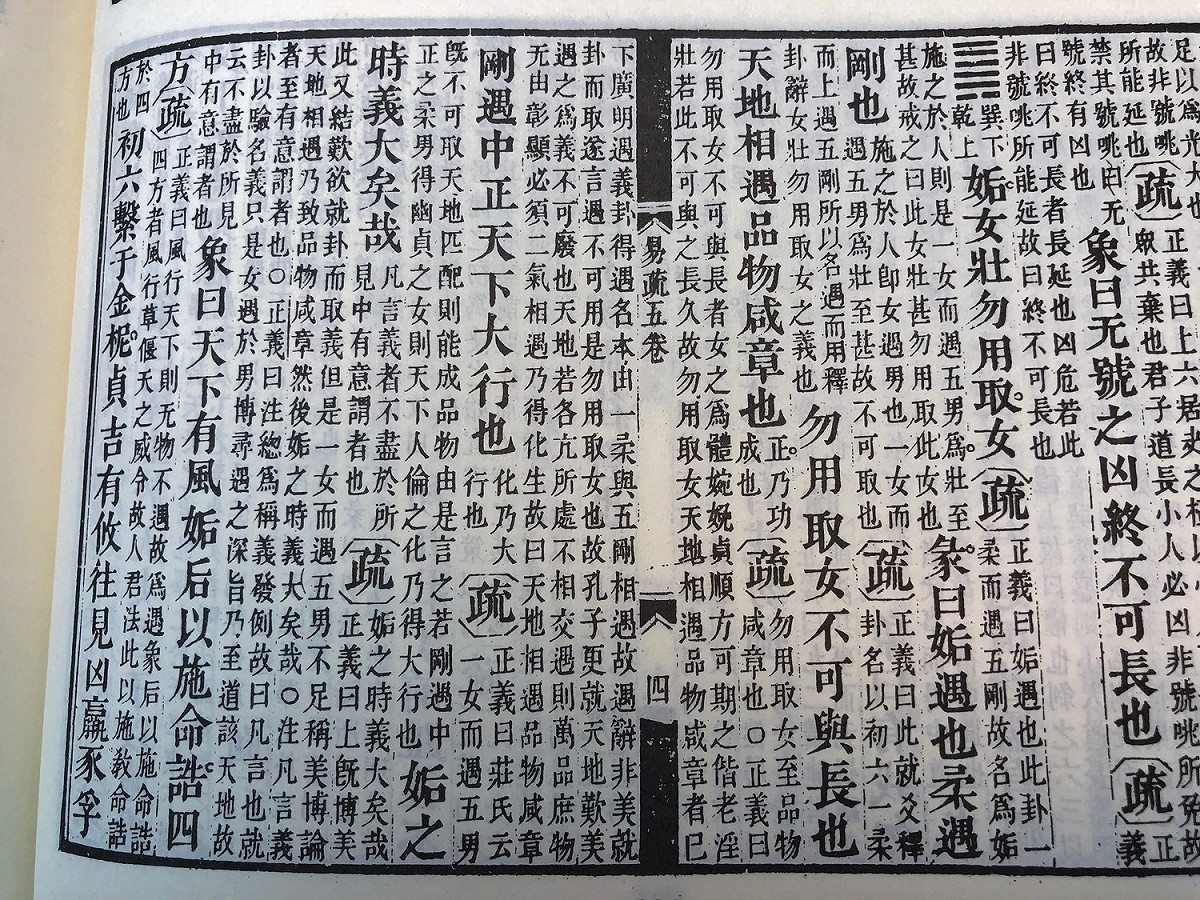 足以爲光大也
故非號咷
所能延也
〔疏〕
正義曰上六居夬之極以
衆共棄也君子道長小人必凶非號咷所免故
禁其號咷曰无
號終有凶也
象曰无號之凶終不可長也〔疏〕
正
義
曰終不可長者長延也凶危若此
非號咷所能延故曰終不可長也
巽下
乾上
姤女壯勿用取女〔疏〕
正義曰姤遇也此卦一
柔而遇五剛故名爲姤
施之於人則是一女而遇五男爲壯至
甚故戒之曰此女壯甚勿用取此女也
彖曰姤遇也柔遇
剛也
施之於人卽女遇男也一女而
遇五男爲壯至甚故不可取也
〔疏〕
正義曰此就爻釋
卦名以初六一柔
而上遇五剛所以名遇而用釋
卦辭女壯勿用取女之義也
勿用取女不可與長也
天地相遇品物咸章也
正乃功
成也
〔疏〕
勿用取女至品物
咸章也○正義曰
勿用取女不可與長者女之爲體婉娩貞順方可期之偕老淫
壯若此不可與之長久故勿用取女天地相遇品物咸章者已
易疏五卷
四
下廣明遇義卦得遇名本由一柔與五剛相遇故遇辭非美就
卦而取遂言遇不可用是勿用取女也故孔子更就天地歎美
遇之爲義不可廢也天地若各亢所處不相交遇則萬品庶物
无由彰顯必須二氣相遇乃得化生故曰天地相遇品物咸章
剛遇中正天下大行也
化乃大
行也
〔疏〕
正義曰莊氏云
一女而遇五男
旣不可取天地匹配則能成品物由是言之若剛遇中
正之柔男得幽貞之女則天下人倫之化乃得大行也
姤之
時義大矣哉
凡言義者不盡於所
見中有意謂者也
〔疏〕
姤之時義大矣哉
正義曰上旣博美
此又結歎欲就卦而取義但是一女而遇五男不足稱美博論
天地相遇乃致品物咸章然後姤之時義大矣哉○注凡言義
者至有意謂者也○正義曰注總爲稱義發例故曰凡言也就
卦以驗名義只是女遇於男博尋遇之深旨乃至道該天地故
云不盡於所見
中有意謂者也
象曰天下有風姤后以施命誥四
方〔疏〕
正義曰風行天下則无物不遇故爲遇象后以施命誥
四方者風行草偃天之威令故人君法此以施敎命誥
於四
方也
初六繫于金柅貞吉有攸往見凶羸豕孚